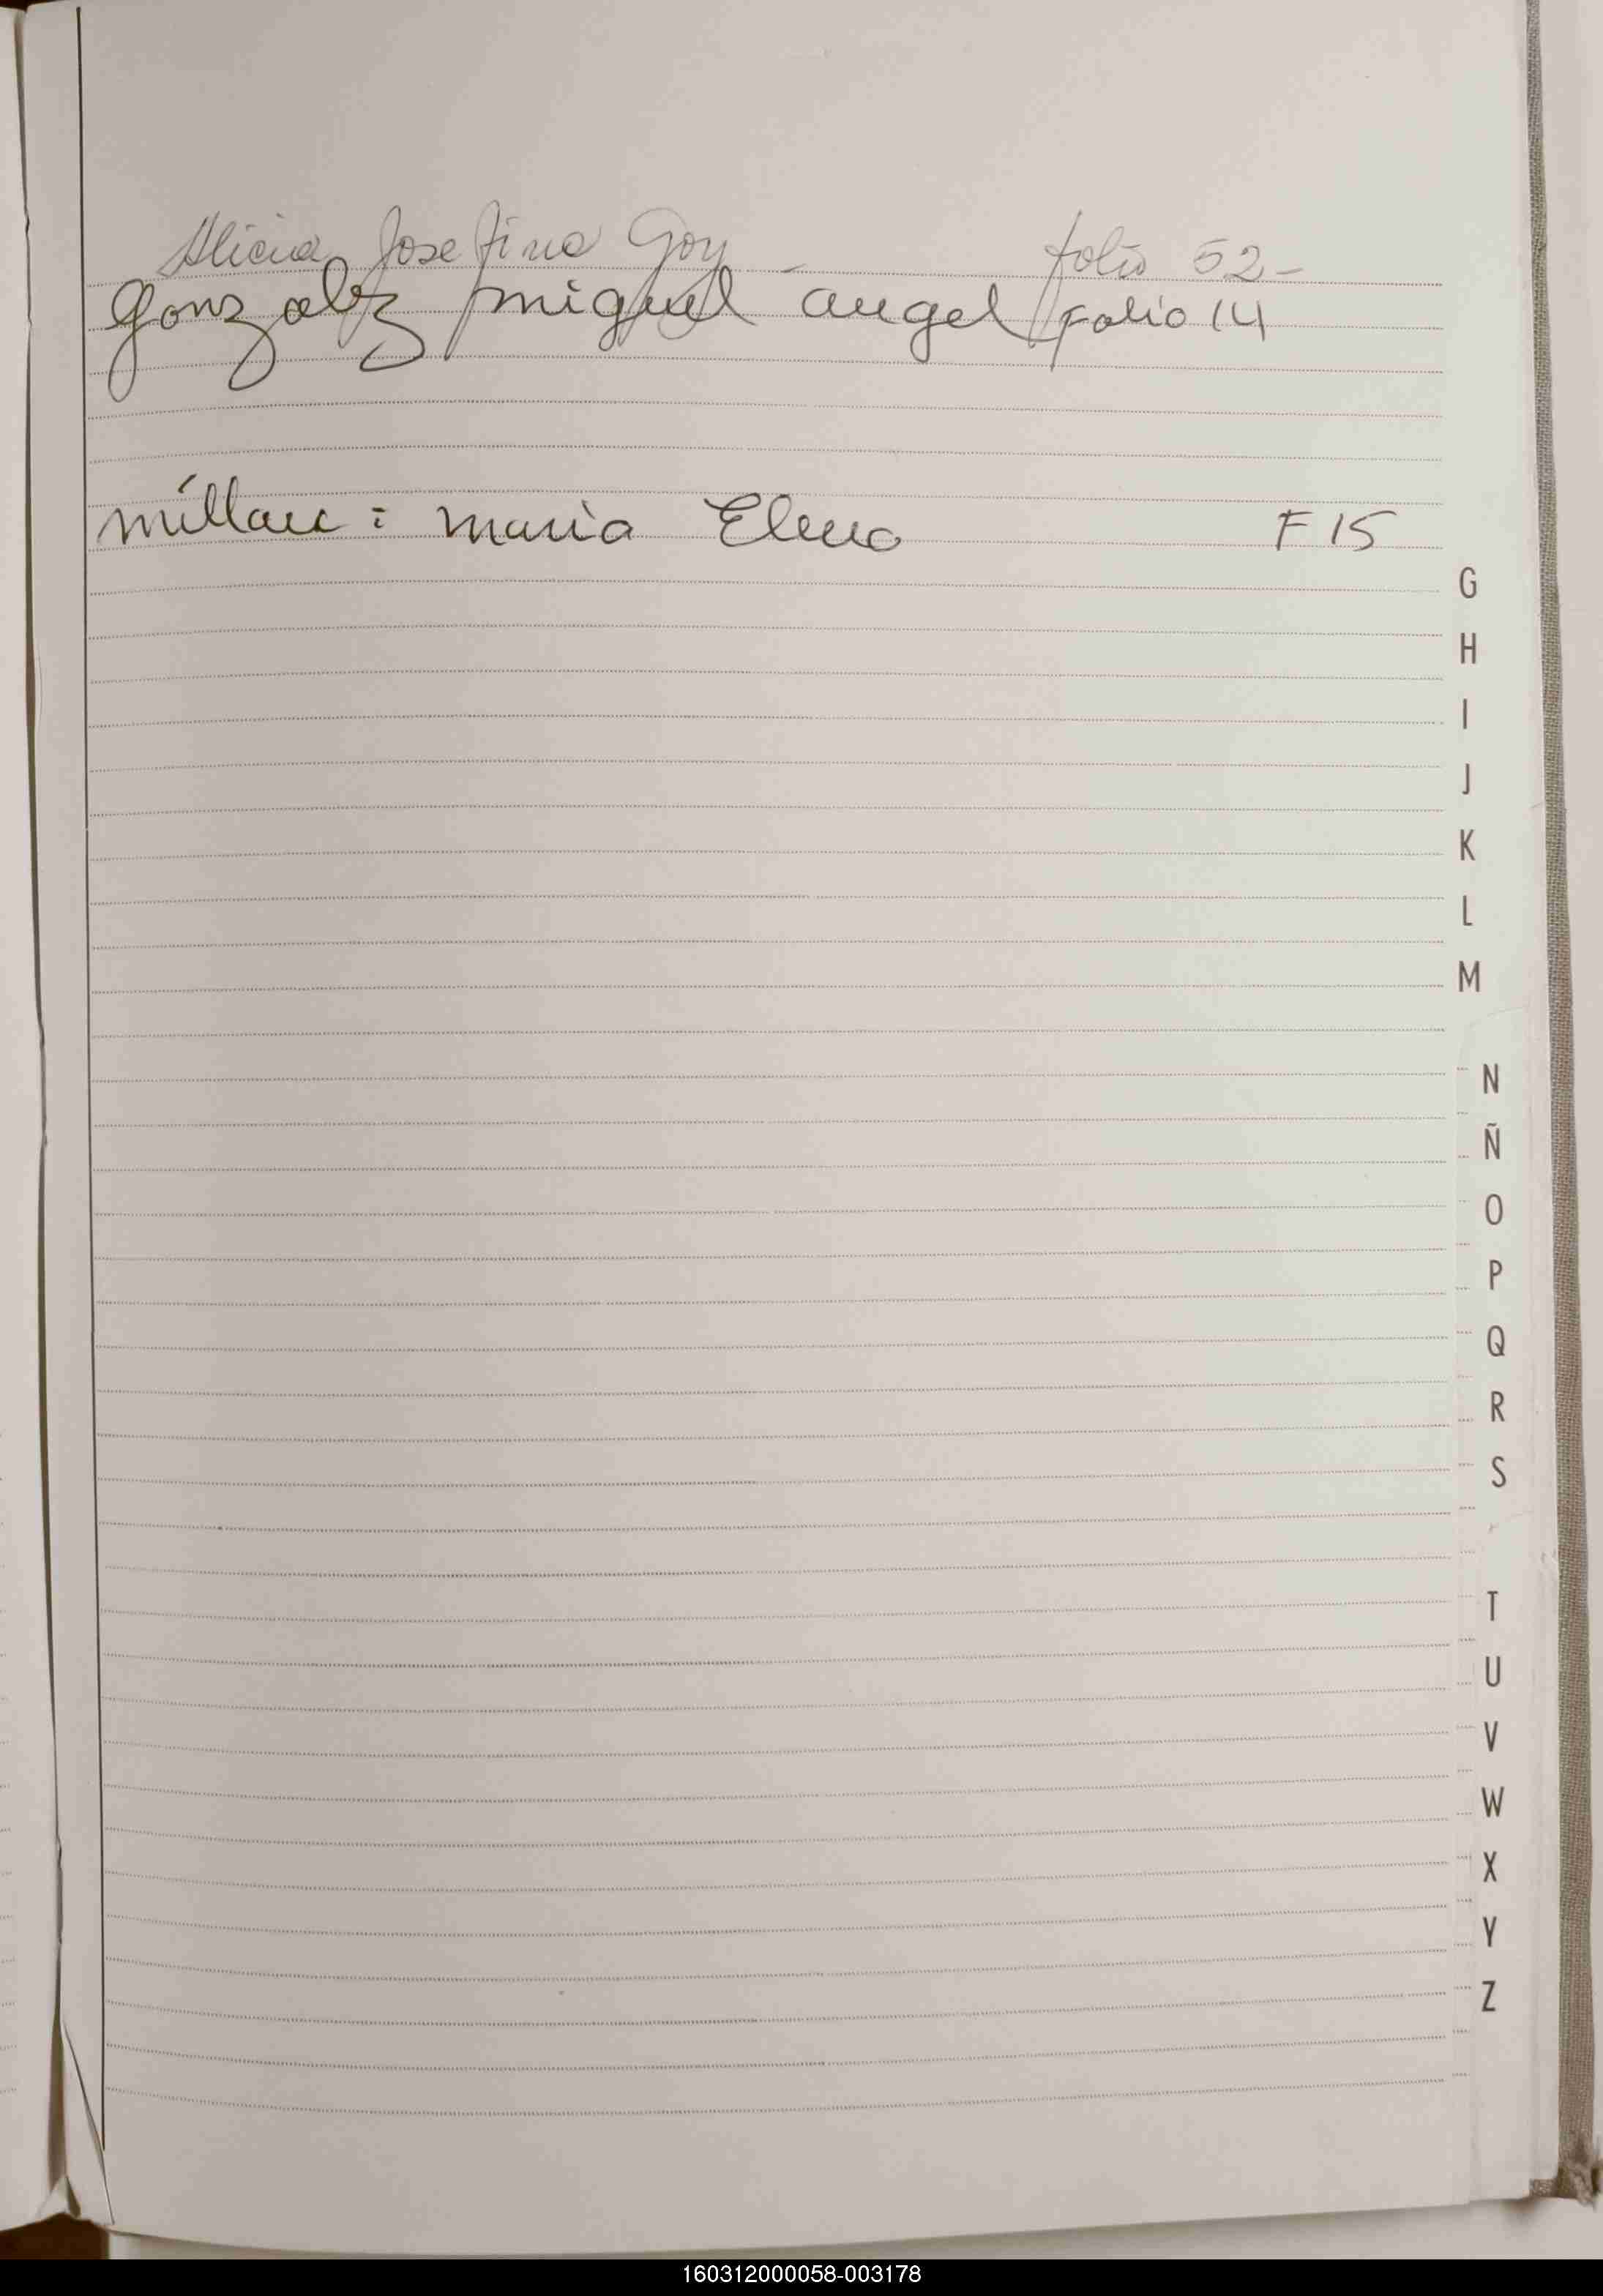 Alicia Josefina Goy - folio 52-
Gonzalez miguel angel Folio 14
maria Elena F 15
G
H
I
J
K
L
M
N
Ñ
O
P
Q
R
S
T
U
V
W
X
Y
Z
160312000058-003178